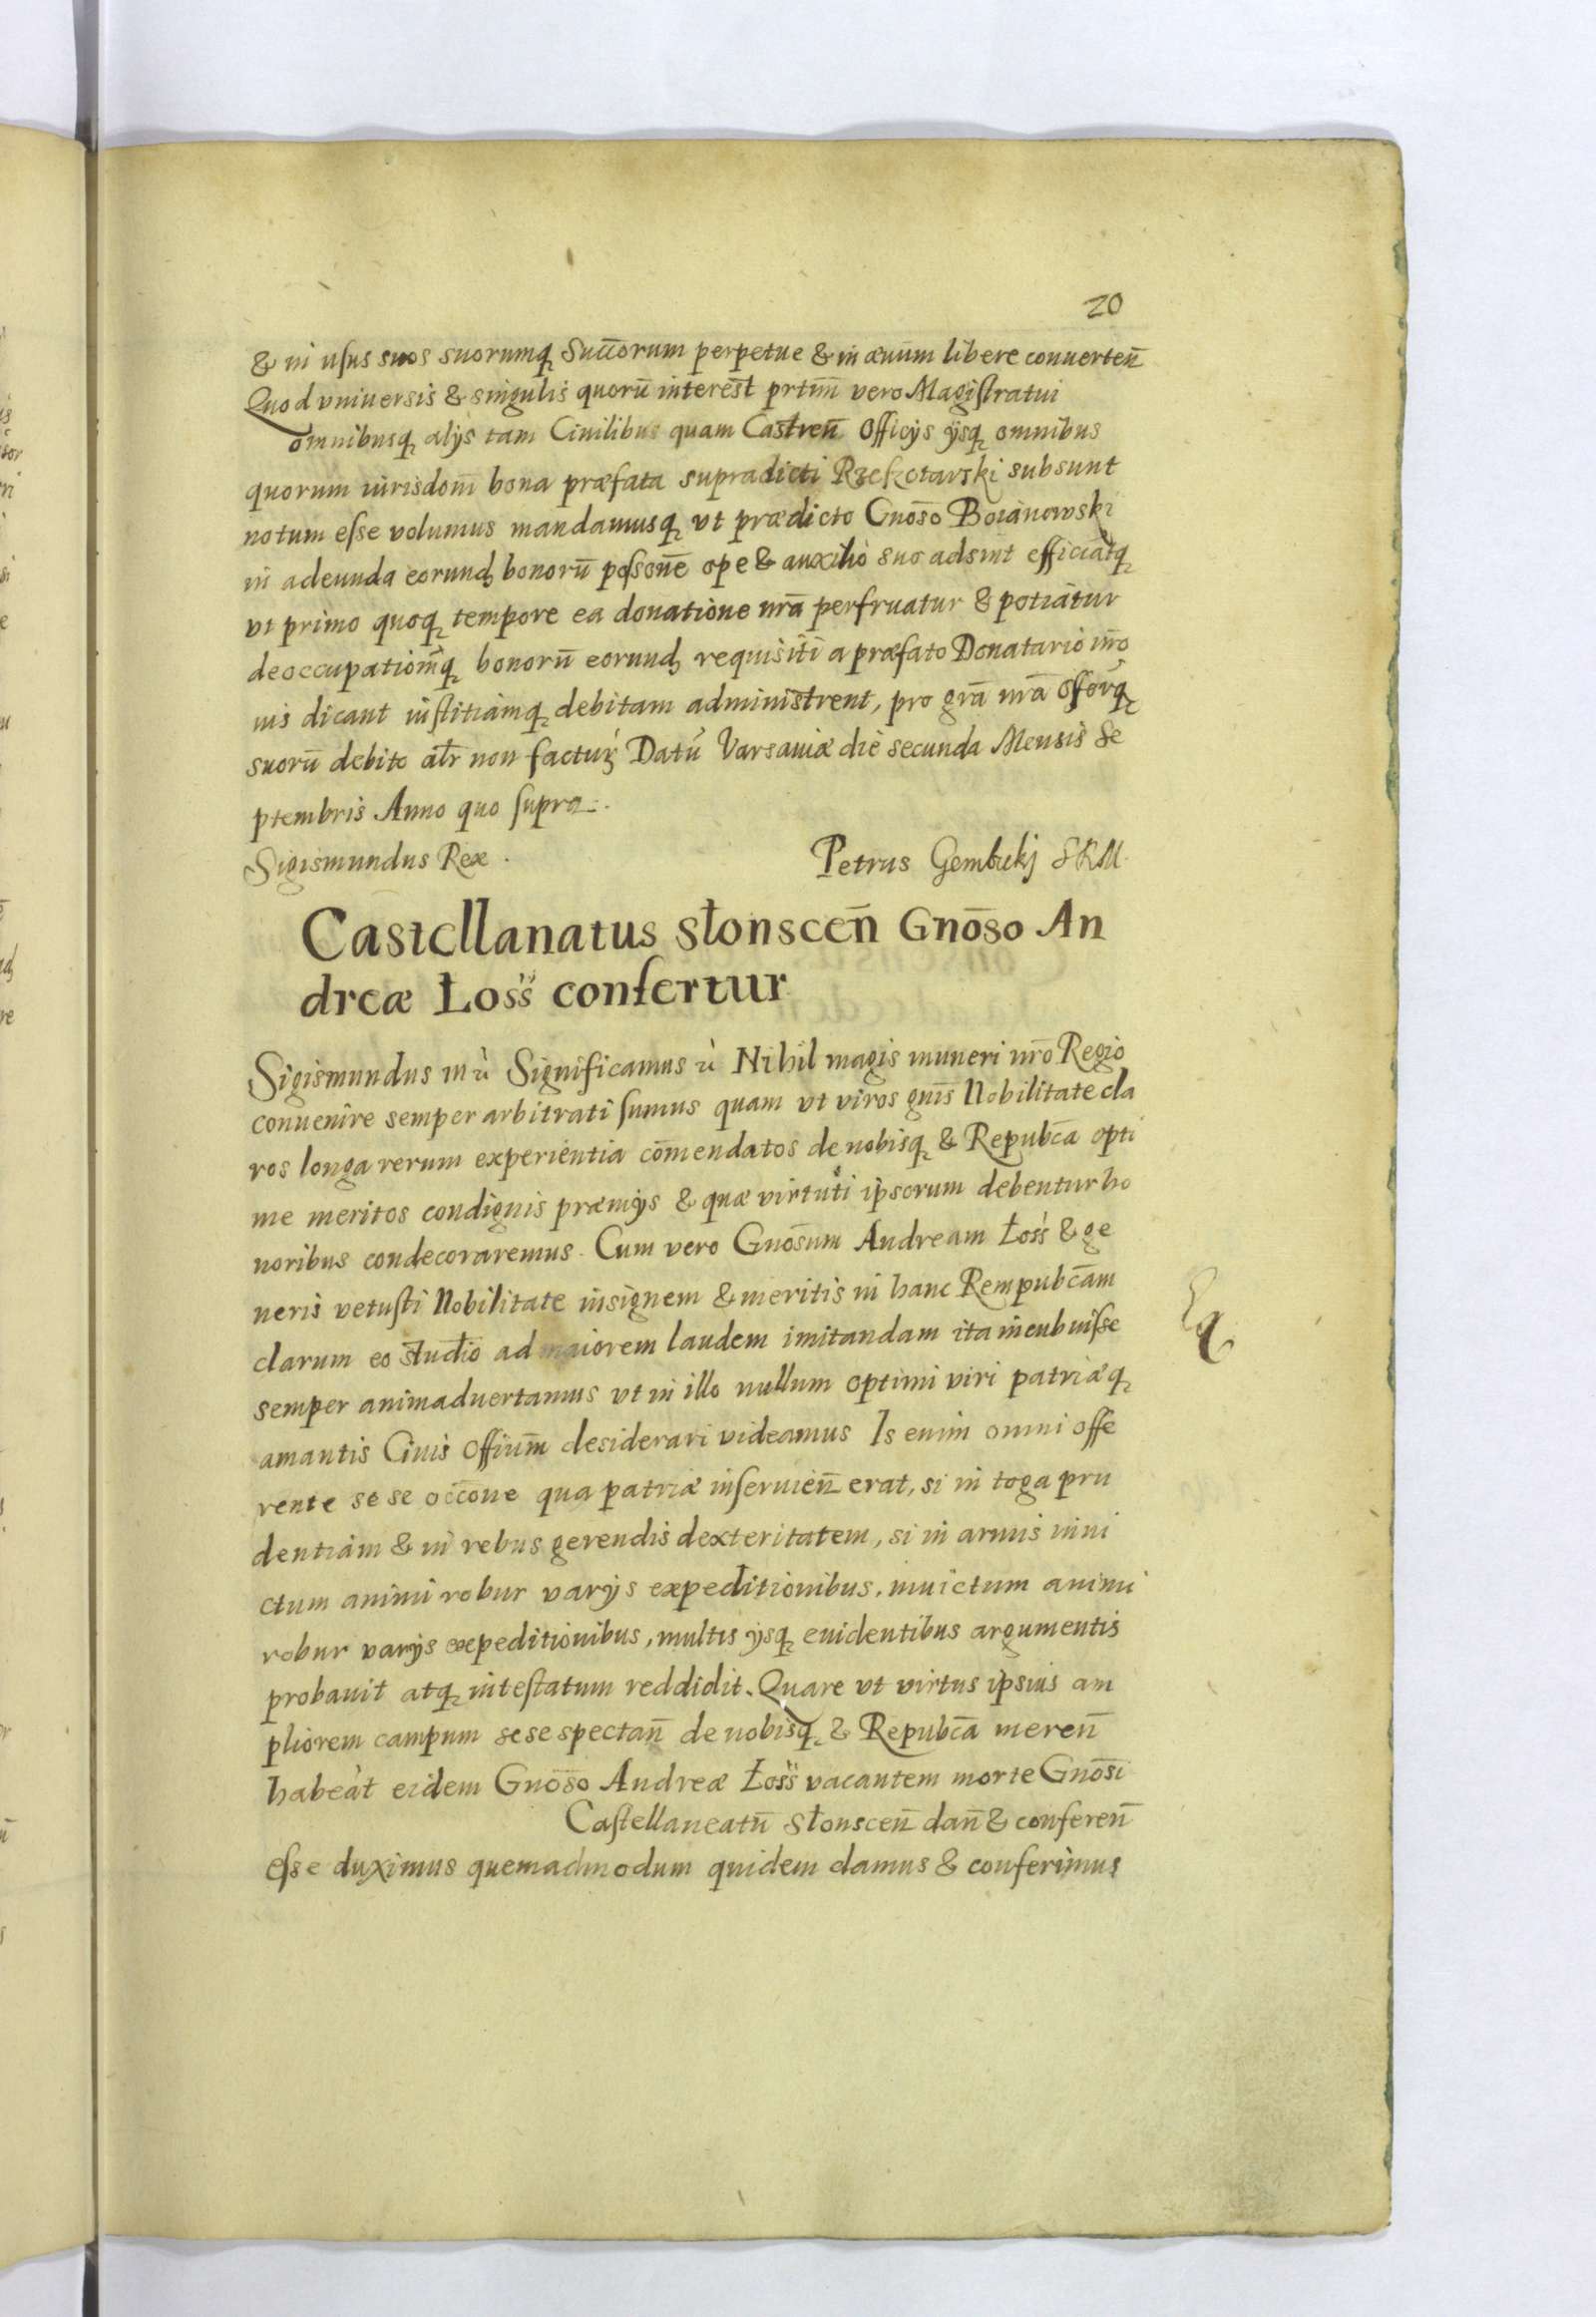 20
& in usus suos suorumq₃ Succ̄orum perpetue & in ævum libere convertēn
Quod vniversis & singulis quorū interēst prtīm vero Magistratui
omnibusq₃ alijs tam Civilibus quam Castrēn Officijs ijsq₃ omnibus
quorum iurisdom̄ bona præfata supradicti Rzekotarski subsunt
notum esse volumus mandamusq₃ vt prædicto Gnōso Boianowski
in adeunda eorund₃ bonorū possonē ope & auxilio suo adsint efficiātq₃
vt primo quoq₃ tempore ea donatione nrā perfruatur & potiatur
deoccupationīq₃ bonorū eorund₃ requisiti a præfato Donatario nrō
ius dicant iustitiamq₃ debitam administrent, pro grā nrā offōrq₃
suorū debito alr̄ non factur₃ Datū Varsaviæ die secunda Mensis Se
ptembris Anno quo supra.
Sigismundus Rex.
Petrus Gembicki SRM.
Castellanatus słonscēn Gnōso An
dreæ Łoss confertur
Sigismundus III ù Significamus ù Nihil magis muneri nrō Regio
convenire semper arbitrati sumus quam vt viros gnīs Nobilitate cla
ros longa rerum experientia cōmendatos de nobisq₃ & Repubcā opti
me meritos condignis præmijs & quæ virtuti ipsorum debentur ho
noribus condecoraremus. Cum vero Gnōsum Andream Łoss & ge
neris vetusti Nobilitate insignem & meritis in hanc Rempubcām
clarum eo studio ad maiorem laudem imitandam ita incubuisse
semper animadvertamus vt in illo nullum optimi viri patriæq₃
amantis Civis offium̄ desiderari videamus Is enim omni offe
rente se se occ̄one qua patriæ inserviēn erat, si in toga pru
dentiam & in rebus gerendis dexteritatem, si in armis invi
ctum animi robur varijs expeditionibus, invictum animi
robur varijs expeditionibus, multis ijsq₃ evidentibus argumentis
probavit atq₃ intestatum reddidit. Quare vt virtus ipsius am
pliorem campum sese spectān de nobisq₃ & Repubcā merēn
habeat eidem Gnōso Andreæ Łoss vacantem morte Gnōsi
Castellaneatū słonscēn dān & conferēn
esse duximus quemadmodum quidem damus & conferimus